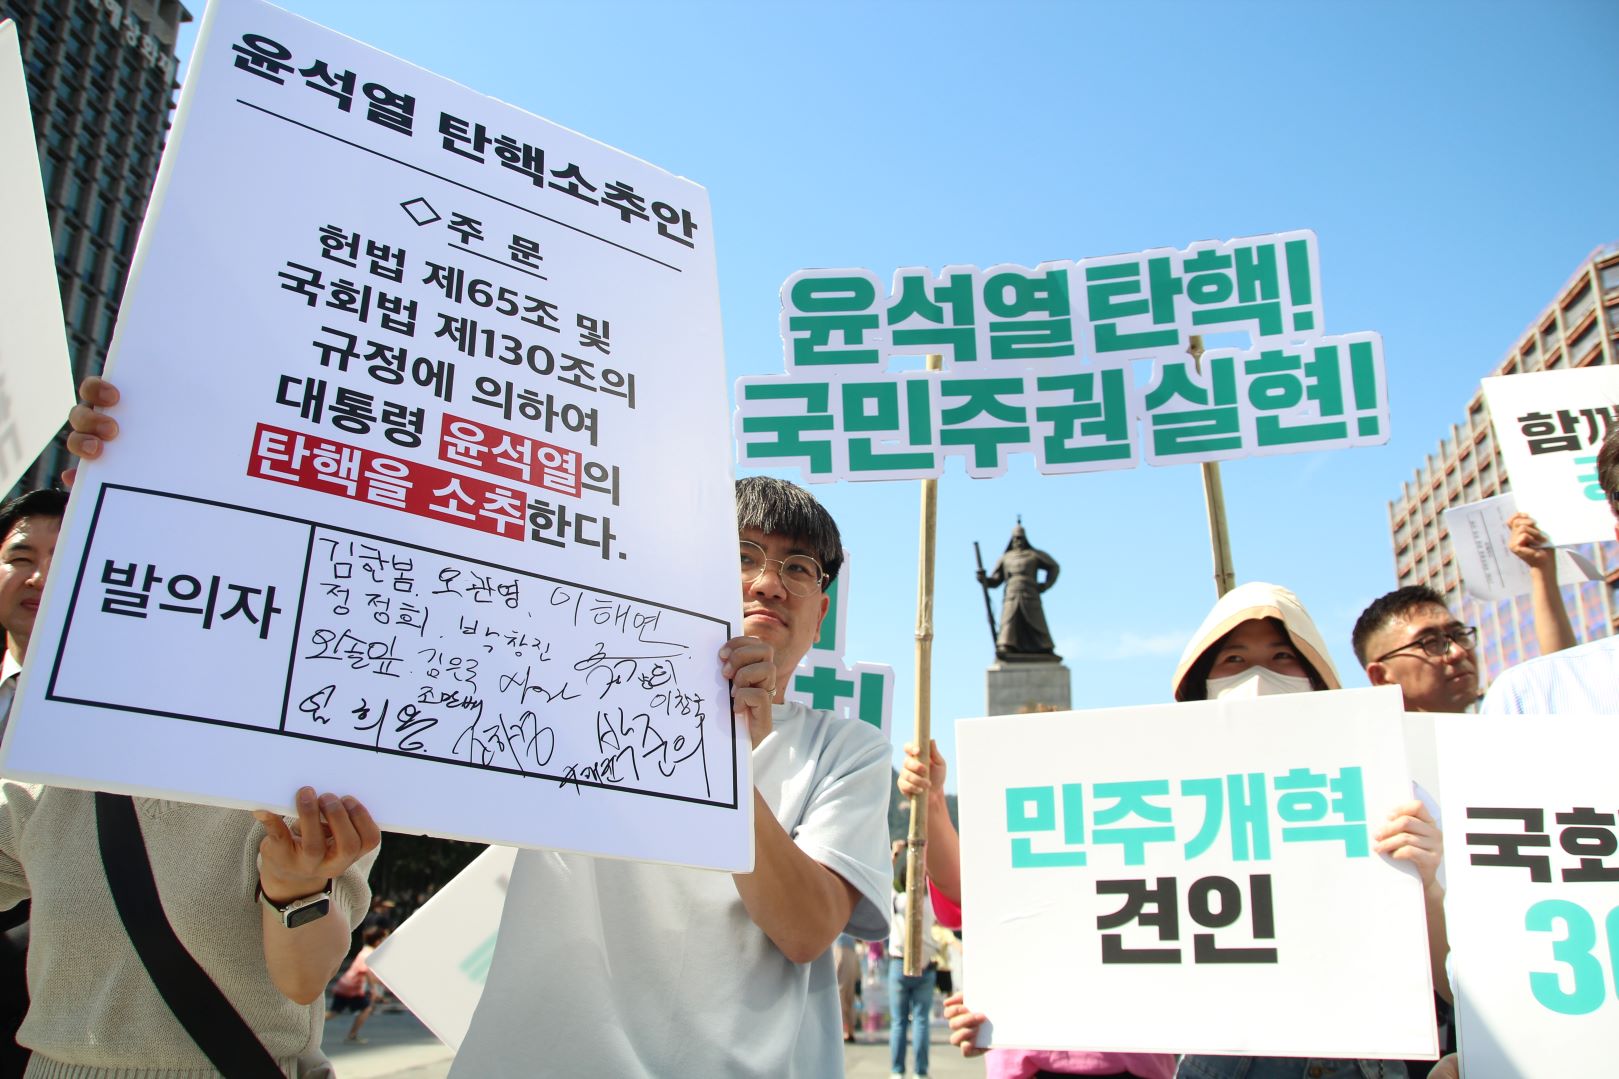 윤석열 탄핵소추안
◇주 문
헌법 제65조 및
국회법 제130조의
규정에 의하여
대통령 윤석열의
탄핵을 소추한다.
발의자
김한봄. 오관영. 이해연
정정희. 박창진
김은국
조만배 이창국
윤석열탄핵!
국민주권실현!
민주개혁
견인
함께
국회
30